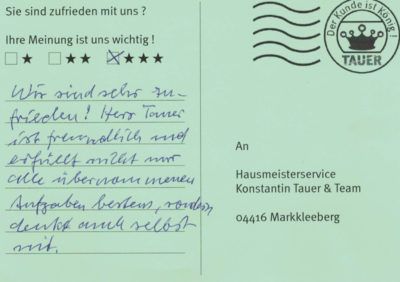 Sie sind zufrieden mit uns ?
Ihre Meinung ist uns wichtig !
Wir sind sehr zu-
frieden! Herr Tauer
ist freundlich und
erfüllt nicht nur
alle übernommenen
Aufgaben bestens, sondern
denkt auch selbst
mit.
Der Kunde ist König !
TAUER
An
Hausmeisterservice
Konstantin Tauer & Team
04416 Markkleeberg